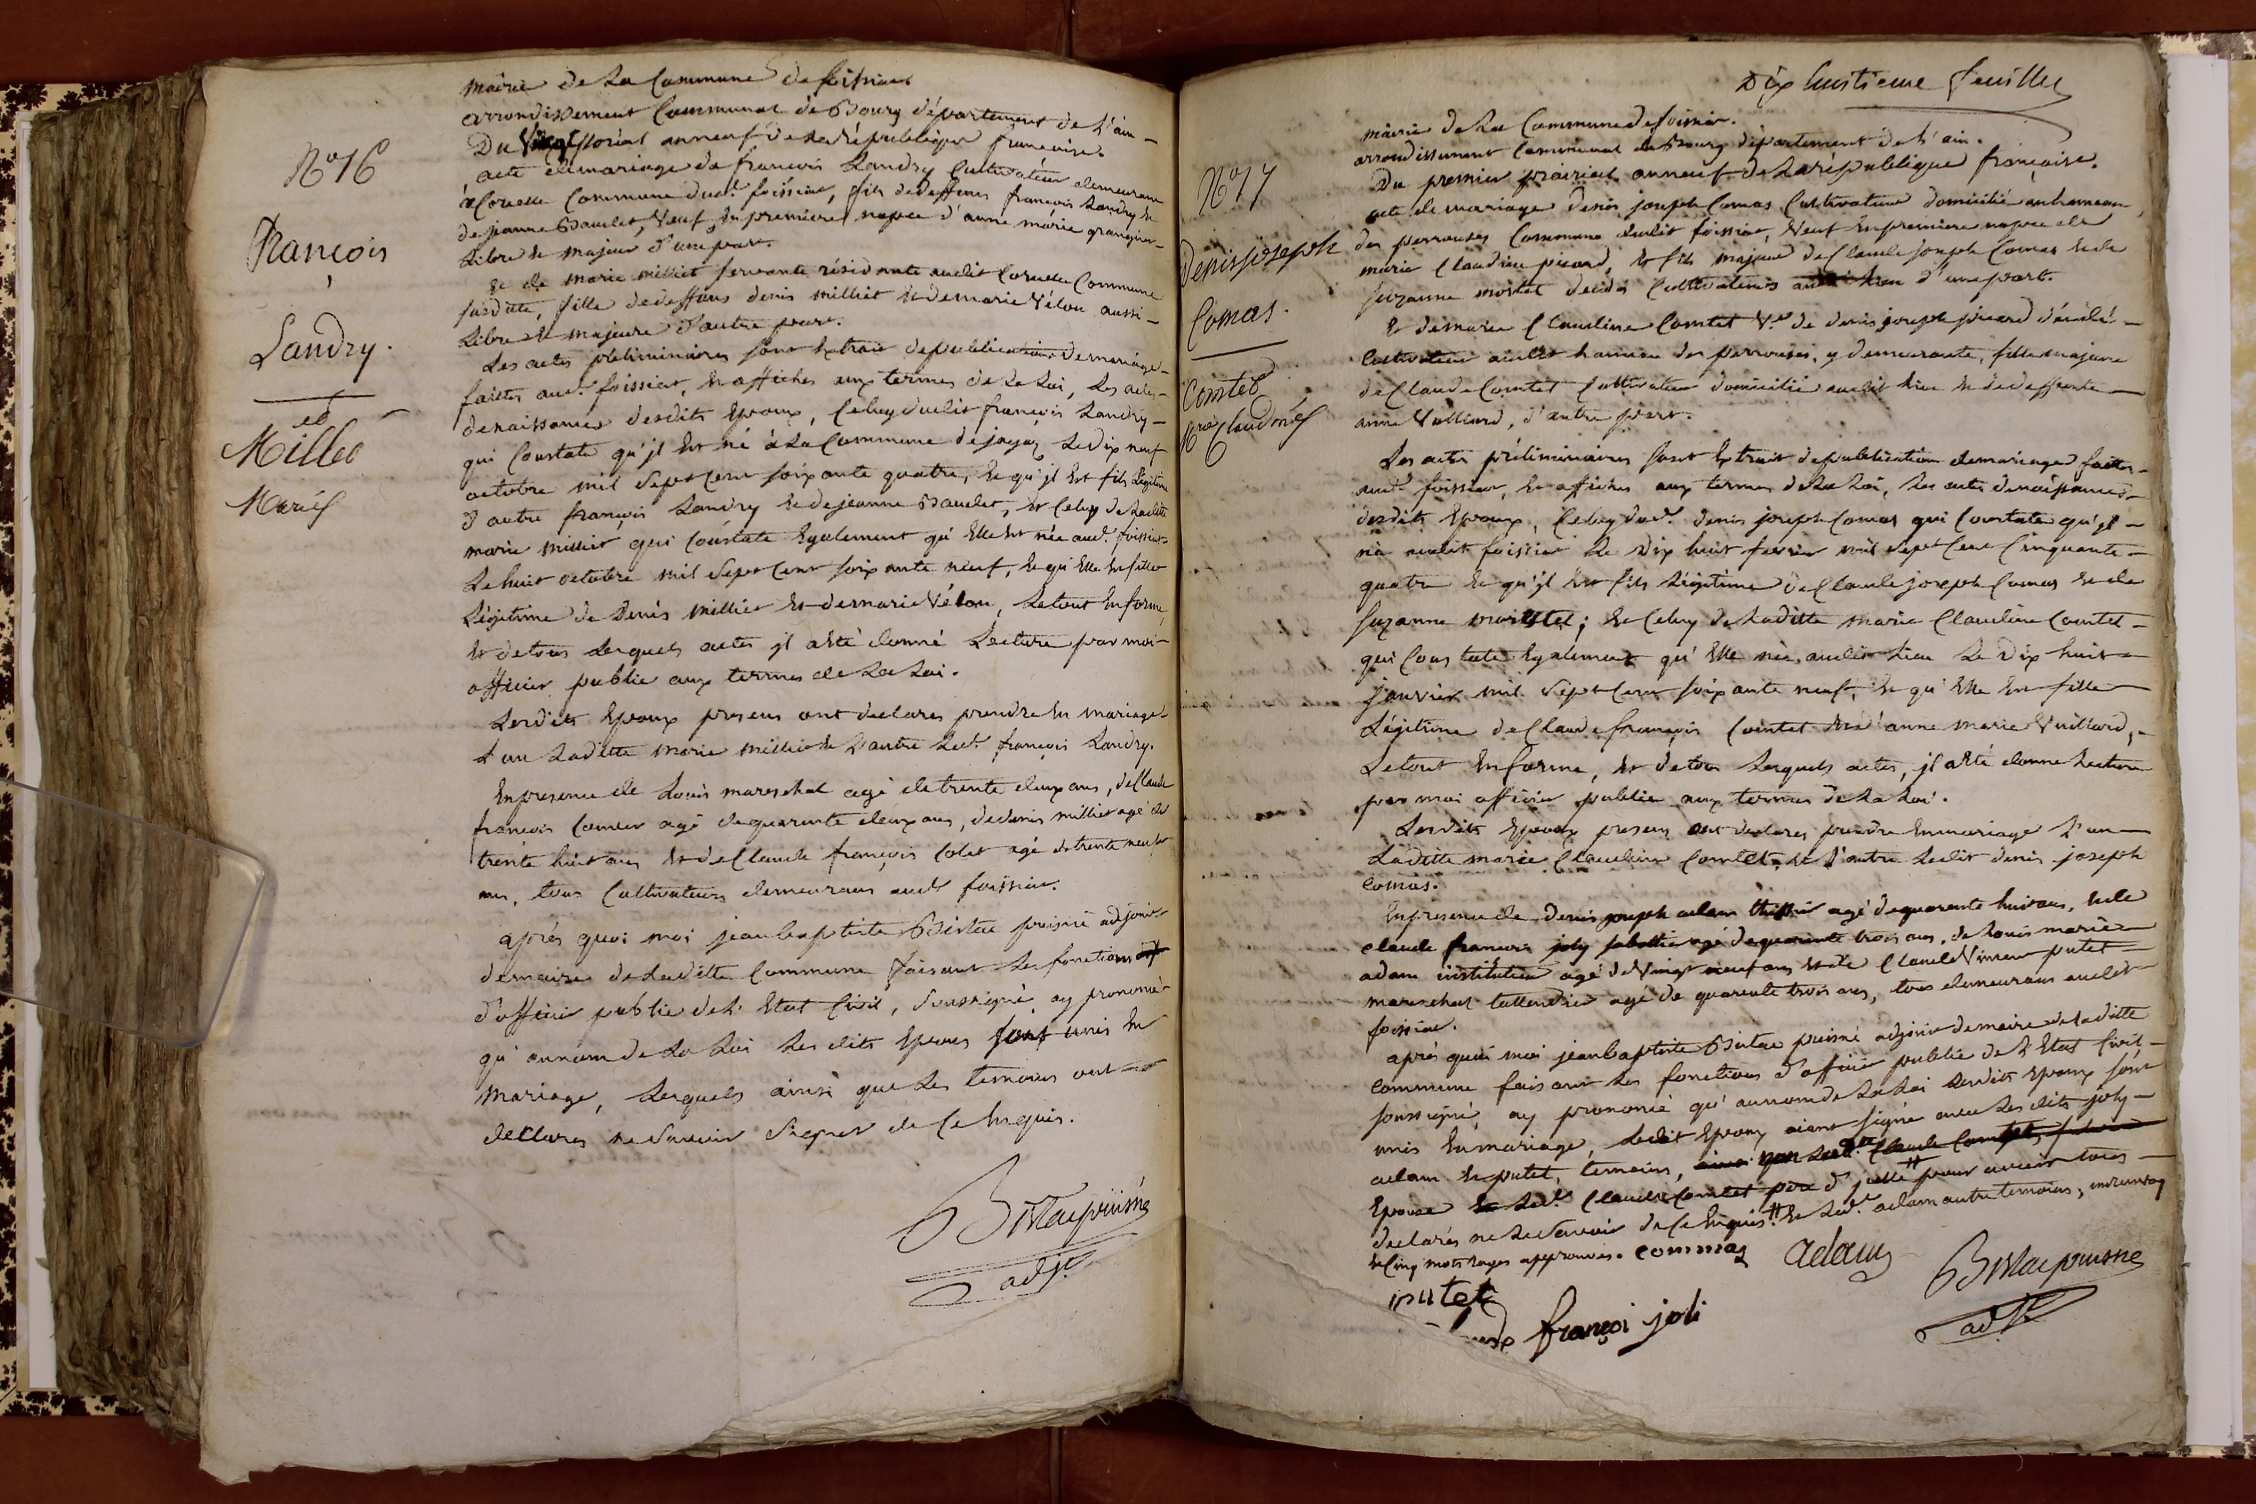 mairie de La Commune de foissiat
arrondissement Communal de Bourg département de L'ain -
Du Vingt floréal an neuf de La république francaise.
N° 16
acte de mariage de francois Landry Cultivateur demeurant
à Cornelle Commune dud.t foissiat, fils de deffunts françois Landry et
de jeanne Baudet, Veuf en premiere nopce d'anne marie grangier
François
Libre et majeur d'une part.
Et de marie milliet servante résidante audit Cornelle Commune
susditte, fille de deffunts denis milliet et de marie Vélon aussi -
Landry.
Libre et majeure d'autre part.
Les actes préliminaires sont Extrait de publications de mariage -
faittes aud.t foissiat, et affiches aux termes de La Loi, Les actes -
et
de naissances desdits Epoux, Celuy dudit françois Landry -
Millet
qui Constate qu'il Est né à La Commune de jayat Le Dix neuf
Marie
octobre mil Sept Cent soixante quatre, Et qu'il Est fils Légitime
d'autre françois Landry et de jeanne Baudet, et Celuy de Laditte
marie milliet qui Constate Egalement qu'Elle Est née aud.t foissiat
Le huit octobre mil Sept Cent soixante neuf, Et qu'Elle Est fille
Légitime de Denis milliet et de marie Vélon, Le tout En forme,
et de tous Lesquels actes il a Eté donné Lecture par moi -
officier public aux termes de La Loi.
Lesdits Epoux presens ont declarés prendre En mariage
L'un Laditte marie milliet et L'autre Led.t françois Landry.
En presence de Louis mareschal agé de trente deux ans, de Claude
françois agé de quarante deux ans, de denis milliet agé de
trente huit ans et de Claude françois Colet agé de trente neuf
ans, tous Cultivateurs demeurans aud.t foissiat.
après quoi moi jean baptiste Bistac puisné adjoint
de maire de Laditte Commune faisant Les fonctions
d'officier public de L'Etat Civil, Soussigné, ay prononcé
qu'au nom de La Loi Les dits Epoux sont unis En
mariage, Lesquels ainsi que Les temoins ont
declarés ne Savoir Signer de Ce Enquis.
Bistac puisné
adj.t
Dix huitieme feuillet
mairie de La Commune de foissiat.
arrondissement Communal de Bourg département de L'ain.
N° 17
Du premier prairial an neuf de La république française.
acte de mariage de denis joseph Comas Cultivateur domicilié au hameau
Denis joseph
des perrouses Commune dudit foissiat, Veuf En premiere nopce de
marie Claudine picard, et fils majeur de Claude joseph Comas et de
Suzanne mortel decédés Cultivateurs audit lieu d'une part.
Comas.
Et de marie Claudine Comtet V.e de denis joseph picard décédé -
Cultivateur audit hameau des perrouses, y demeurante, fille majeure
Comtet
de Claude Comtet Cultivateur domicilié audit lieu et de deffunte
M.rie Claudine
anne Vuillard, d'autre part.
Les actes préliminaires sont Extrait de publication de mariages faittes -
aud.t foissiat, et affiches aux termes de La Loi, Les actes de naissances -
desdits Epoux, Celuy dud.t denis joseph Comas qui Constate qu'il -
né audit foissiat Le Dix huit fevrier mil Sept Cent Cinquante -
quatre Et qu'il Est fils Légitime de Claude joseph Comas et de
Suzanne mortel; et Celuy de Laditte marie Claudine Comtet -
qui Constate Egalement qu'Elle née audit Lieu Le Dix huit
janvier mil Sept Cent soixante neuf, Et qu'Elle Est fille
Légitime de Claude françois Comtet et d'anne marie Vuillard, -
Le tout En forme, et de tous Lesquels actes, il a Eté donné Lecture
par moi officier public aux termes de La Loi.
Lesdits Epoux presens ont declarés prendre En mariage L'un
Laditte marie Claudine Comtet, et L'autre Ledit denis joseph
Comas.
En presence de denis joseph adam agé de quarante huit ans, et de
claude francois joly sabottier agé de quarante trois ans, de Louis marie
adam instituteur agé de Vingt neuf ans et de Claude Vincent putet
mareschal taillandier agé de quarente trois ans, tous demeurans audit
foissiat.
après quoi moi jean baptiste Bistac puisné adjoint de maire de Laditte
Commune faisant Les fonctions d'officier public de L'Etat Civil -
soussigné, ay prononcé qu'au nom de La Loi Lesdits Epoux sont
unis En mariage, Ledit Epoux aiant signé avec Les dits joly -
adam et putet, temoins, ainsi non Lad.te Claude Comtet,
Epouse et Led.t Claude Comtet père d'icelle // pour avoir tous -
declarés ne Le Savoir de Ce Enquis. // Et Led.t adam autre temoins,
et Cinq mots rayés approuvés. commas
adam
Bistac puisné
adj.t
putet
françoi joli